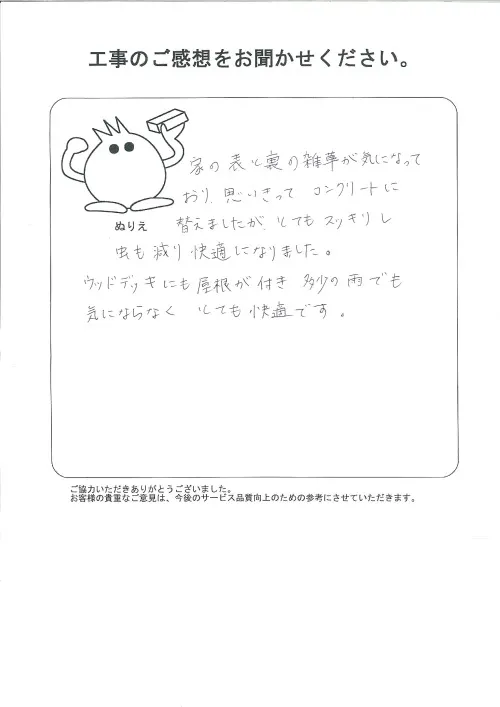 工事のご感想をお聞かせください。
家の表と裏の雑草が気になって
おり、思いきって コンクリートに
ぬりえ
替えましたが、とてもスッキリし
虫も減り快適になりました。
ウッドデッキにも屋根が付き 多少の雨でも
気にならなく とても快適です。
ご協力いただきありがとうございました。
お客様の貴重なご意見は、今後のサービス品質向上のための参考にさせていただきます。